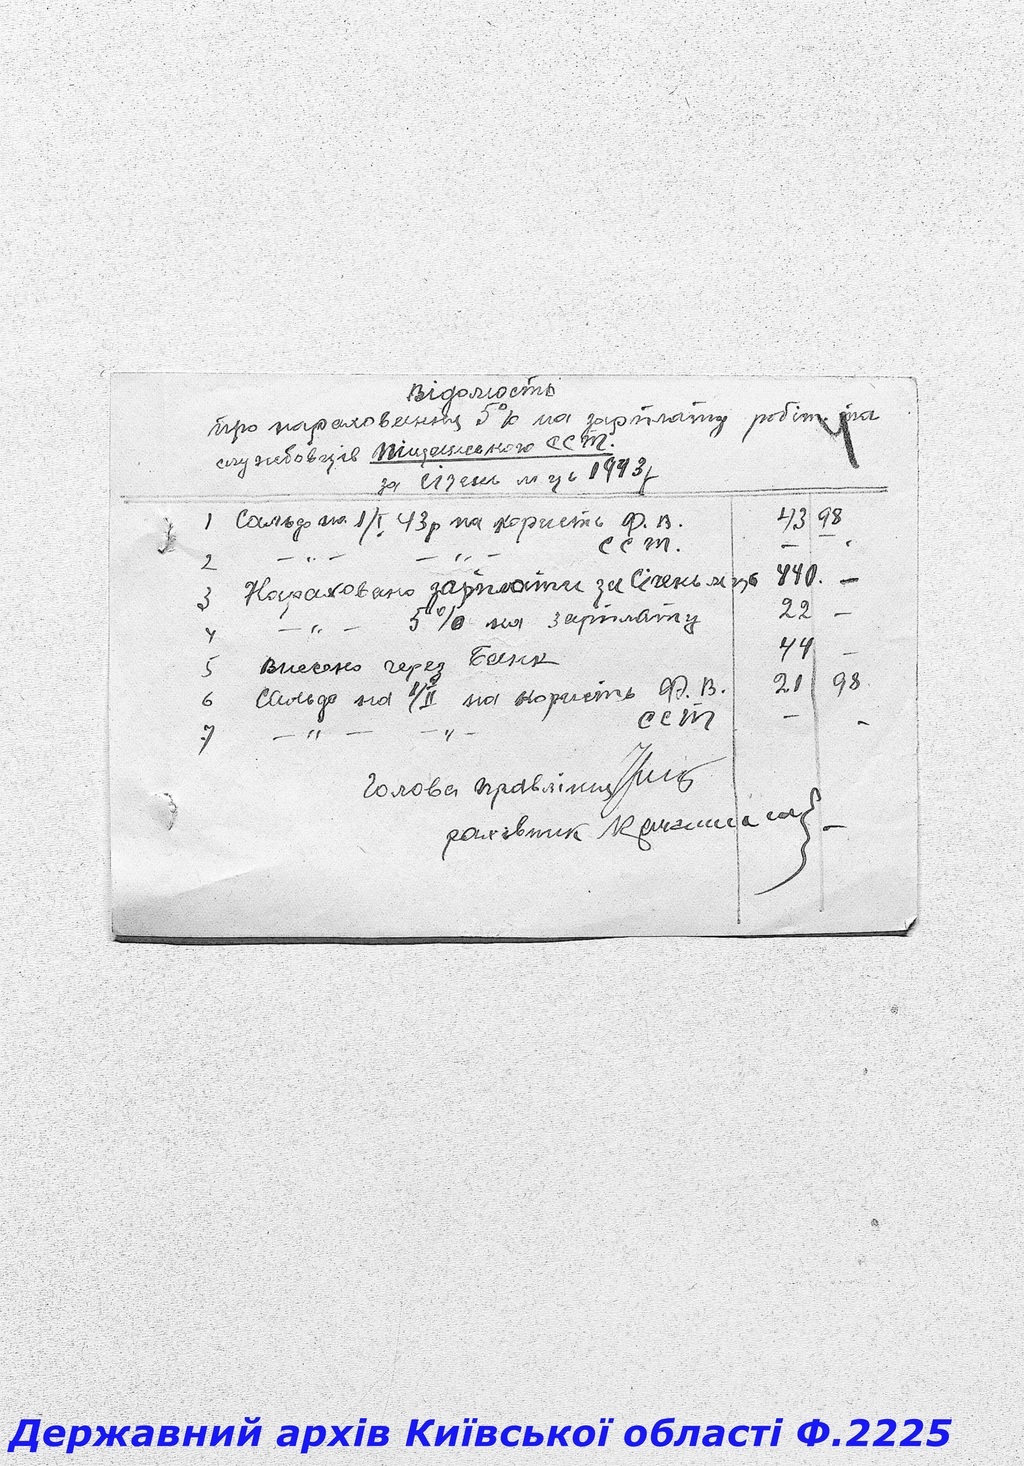 Відомость
про нараховання 5% на зарплату робітн. та
службовців Піщанського ССТ.
за Січень м-ць 1943р
1 Сальдо на 1/I 43р на користь Ф. В. 43 98
2 — " — — " — ССТ. —
3 Нараховано зарплати за Січень м-ць 440. —
4 — " — 5% на зарплату 22 —
5 Внесено через Банк 44 —
6 Сальдо на 1/II на користь Ф. В. 21 98
7 — " — — " — ССТ — -
Голова правління
рахівник
Державний архів Київської області Ф.2225